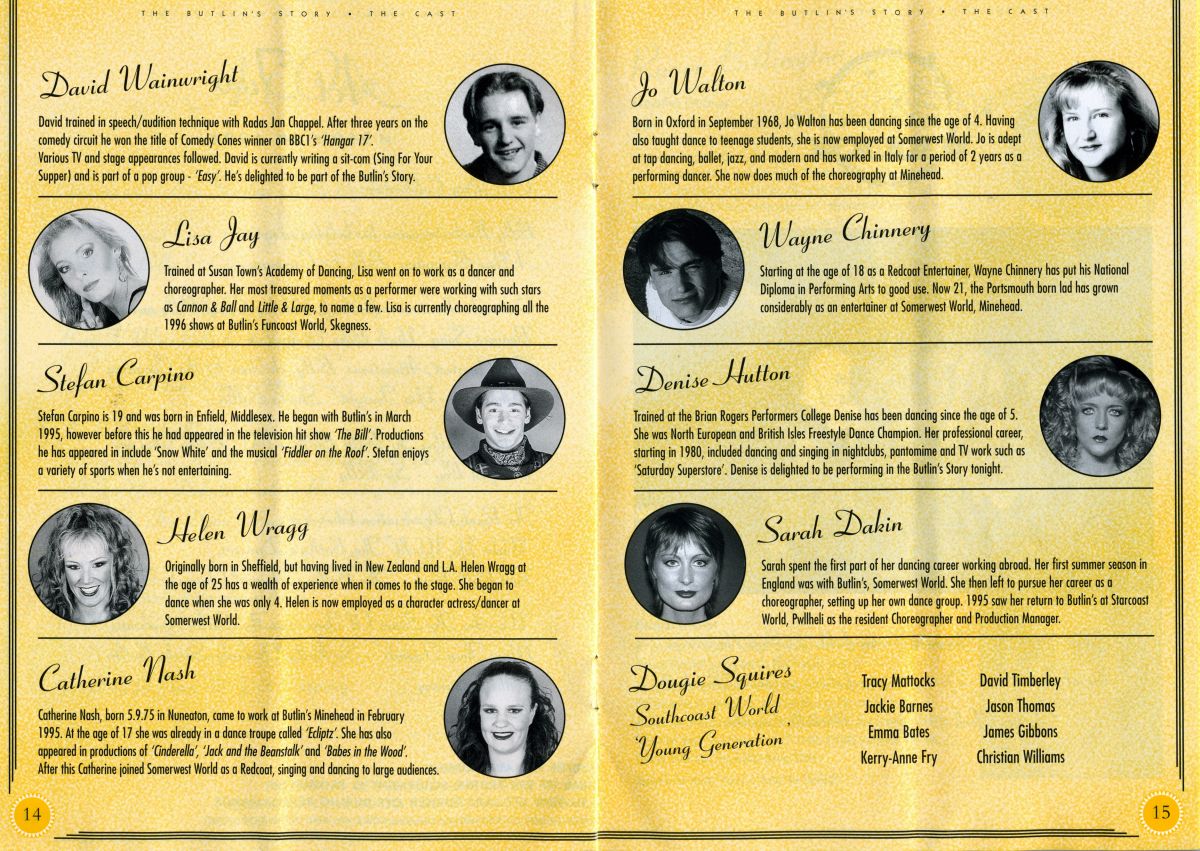 THE BUTLIN'S STORY • THE CAST
David Wainwright
David trained in speech/audition technique with Radas Jan Chappel. After three years on the
comedy circuit he won the title of Comedy Cones winner on BBC1's 'Hangar 17'.
Various TV and stage appearances followed. David is currently writing a sit-com (Sing For Your
Supper) and is part of a pop group - 'Easy'. He's delighted to be part of the Butlin's Story.
Lisa Jay
Trained at Susan Town's Academy of Dancing, Lisa went on to work as a dancer and
choreographer. Her most treasured moments as a performer were working with such stars
as Cannon & Ball and Little & Large, to name a few. Lisa is currently choreographing all the
1996 shows at Butlin's Funcoast World, Skegness.
Stefan Carpino
Stefan Carpino is 19 and was born in Enfield, Middlesex. He began with Butlin's in March
1995, however before this he had appeared in the television hit show 'The Bill'. Productions
he has appeared in include 'Snow White' and the musical 'Fiddler on the Roof'. Stefan enjoys
a variety of sports when he's not entertaining.
Helen Wragg
Originally born in Sheffield, but having lived in New Zealand and L.A. Helen Wragg at
the age of 25 has a wealth of experience when it comes to the stage. She began to
dance when she was only 4. Helen is now employed as a character actress/dancer at
Somerwest World.
Catherine Nash
Catherine Nash, born 5.9.75 in Nuneaton, came to work at Butlin's Minehead in February
1995. At the age of 17 she was already in a dance troupe called 'Ecliptz'. She has also
appeared in productions of 'Cinderella', 'Jack and the Beanstalk' and 'Babes in the Wood'.
After this Catherine joined Somerwest World as a Redcoat, singing and dancing to large audiences.
14
THE BUTLIN'S STORY • THE CAST
Jo Walton
Born in Oxford in September 1968, Jo Walton has been dancing since the age of 4. Having
also taught dance to teenage students, she is now employed at Somerwest World. Jo is adept
at tap dancing, ballet, jazz, and modern and has worked in Italy for a period of 2 years as a
performing dancer. She now does much of the choreography at Minehead.
Wayne Chinnery
Starting at the age of 18 as a Redcoat Entertainer, Wayne Chinnery has put his National
Diploma in Performing Arts to good use. Now 21, the Portsmouth born lad has grown
considerably as an entertainer at Somerwest World, Minehead.
Denise Hutton
Trained at the Brian Rogers Performers College Denise has been dancing since the age of 5.
She was North European and British Isles Freestyle Dance Champion. Her professional career,
starting in 1980, included dancing and singing in nightclubs, pantomime and TV work such as
'Saturday Superstore'. Denise is delighted to be performing in the Butlin's Story tonight.
Sarah Dakin
Sarah spent the first part of her dancing career working abroad. Her first summer season in
England was with Butlin's, Somerwest World. She then left to pursue her career as a
choreographer, setting up her own dance group. 1995 saw her return to Butlin's at Starcoast
World, Pwllheli as the resident Choreographer and Production Manager.
Dougie Squires
Southcoast World
'Young Generation'
Tracy Mattocks
Jackie Barnes
Emma Bates
Kerry-Anne Fry
David Timberley
Jason Thomas
James Gibbons
Christian Williams
15